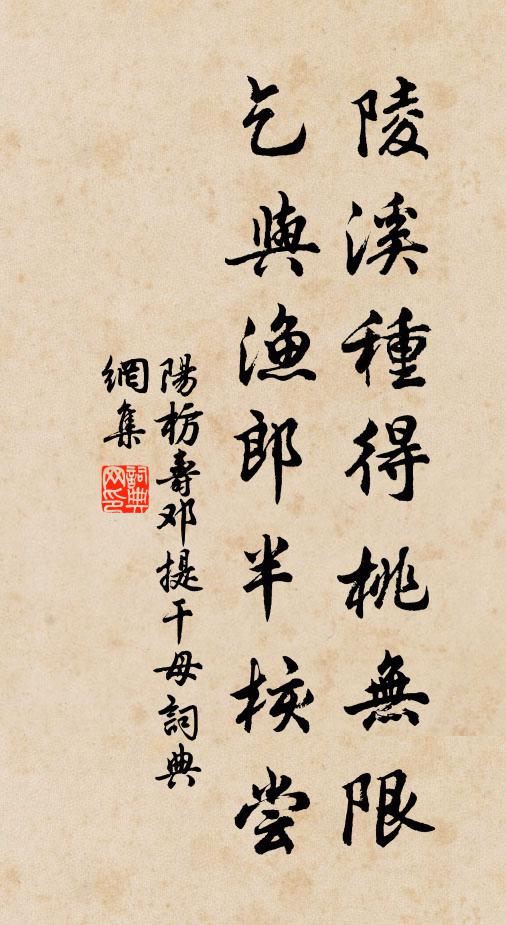 陵溪種得桃無限
乞與漁郎半核嘗
陽枋壽邓提干母詞典
網集
詞典
网印